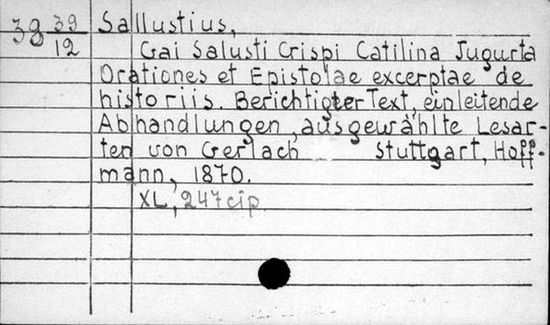 39 39/12 Sallustius,
Gai Salusti Crispi Catilina Jugurta
Orationes et Epistolae excerptae de
historiis. Berichtigter Text, einleitende
Abhandlungen, ausgewählte Lesar-
ten von Gerlach Stuttgart, Hoff-
mann, 1870.
XL, 247 cip